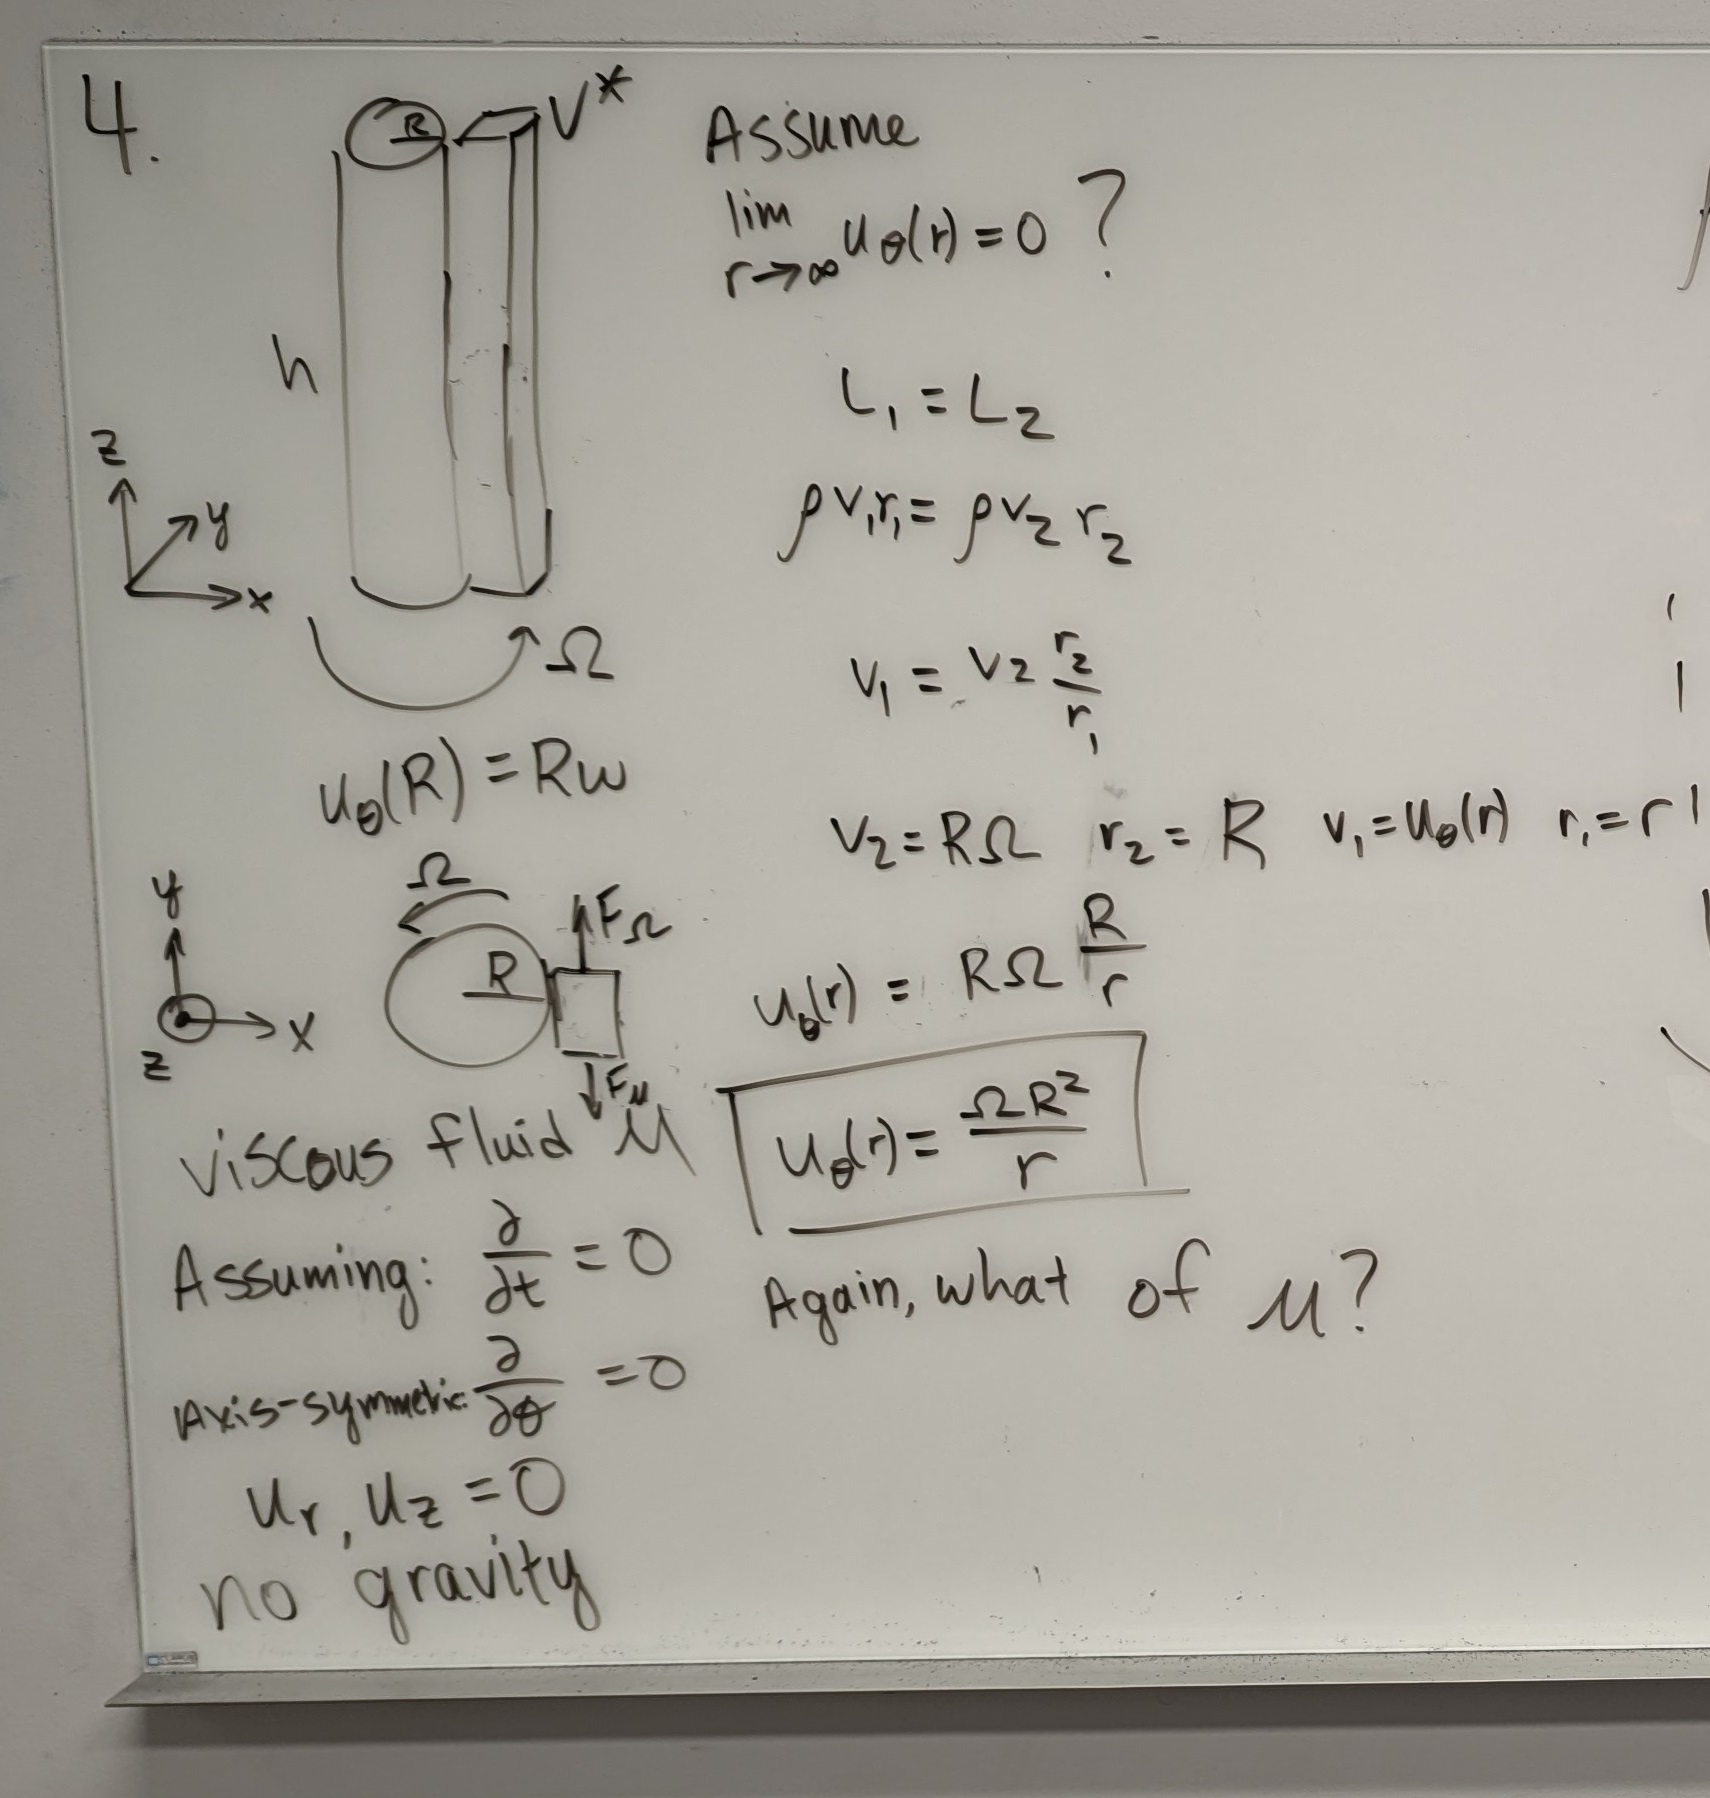 4.
R
V*
h
z
y
x
Ω
u_θ(R) = Rω
Ω
y
x
z
R
F_Ω
F_μ
viscous fluid μ
Assuming: ∂/∂t = 0
Axis-symmetric: ∂/∂θ = 0
u_r, u_z = 0
no gravity
Assume
lim r→∞ u_θ(r) = 0 ?
L₁ = L₂
ρv₁r₁ = ρv₂r₂
v₁ = v₂ r₂/r₁
v₂ = RΩ r₂ = R v₁ = u_θ(r) r₁ = r
u_θ(r) = RΩ R/r
u_θ(r) = ΩR²/r
Again, what of μ?